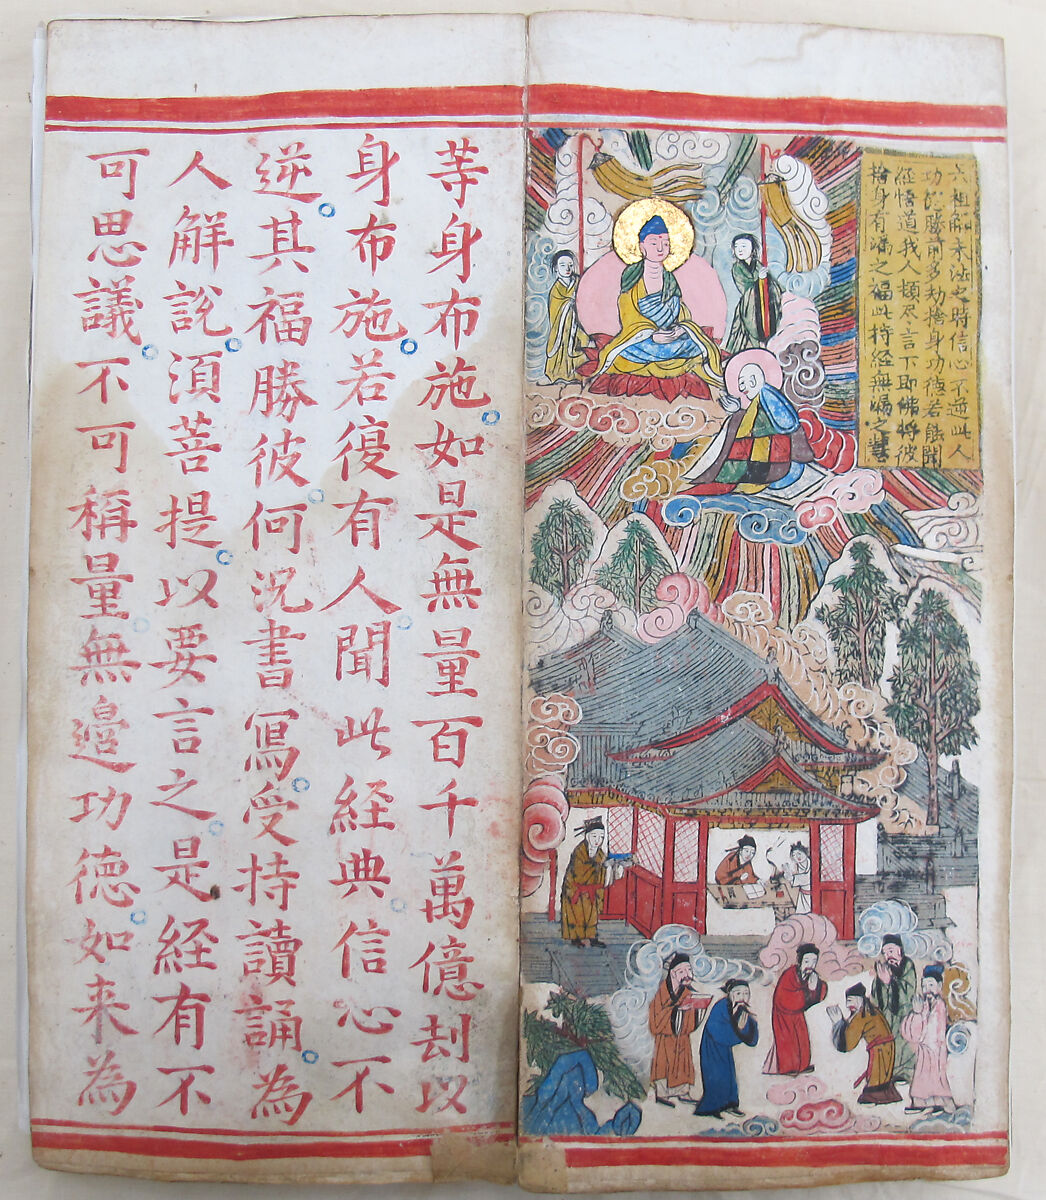 六祖解末法之時信心不逆此人
功德勝前多劫捨身功德若能聞
經悟道我人頓尽言下即佛将彼
捨身有漏之福此持經無漏之慧
等身布施。如是無量百千萬億刦以
身布施。若復有人。聞此経典。信心不
逆。其福勝彼。何況書寫。受持讀誦。為
人解說。湏菩提。以要言之。是経有不
可思議。不可稱量。無邊功德。如来為